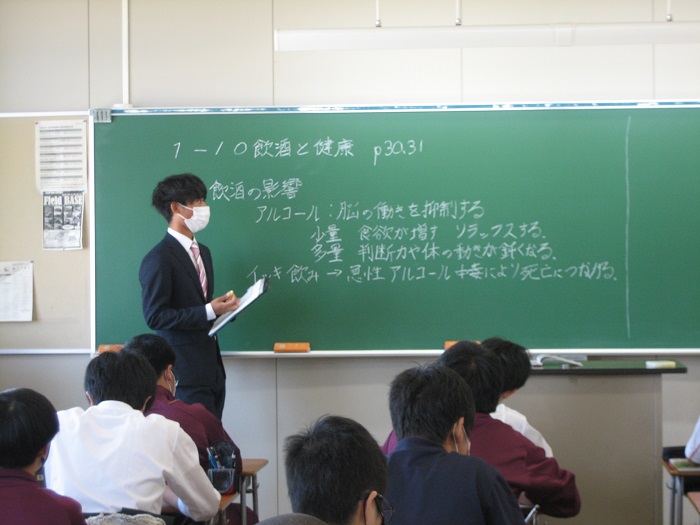 1-10飲酒と健康 p30.31
飲酒の影響
アルコール:脳の働きを抑制する
少量 食欲が増す リラックスする。
多量 判断力や体の動きが鈍くなる。
イッキ飲み→急性アルコール中毒により死亡につながる。
Field BASE